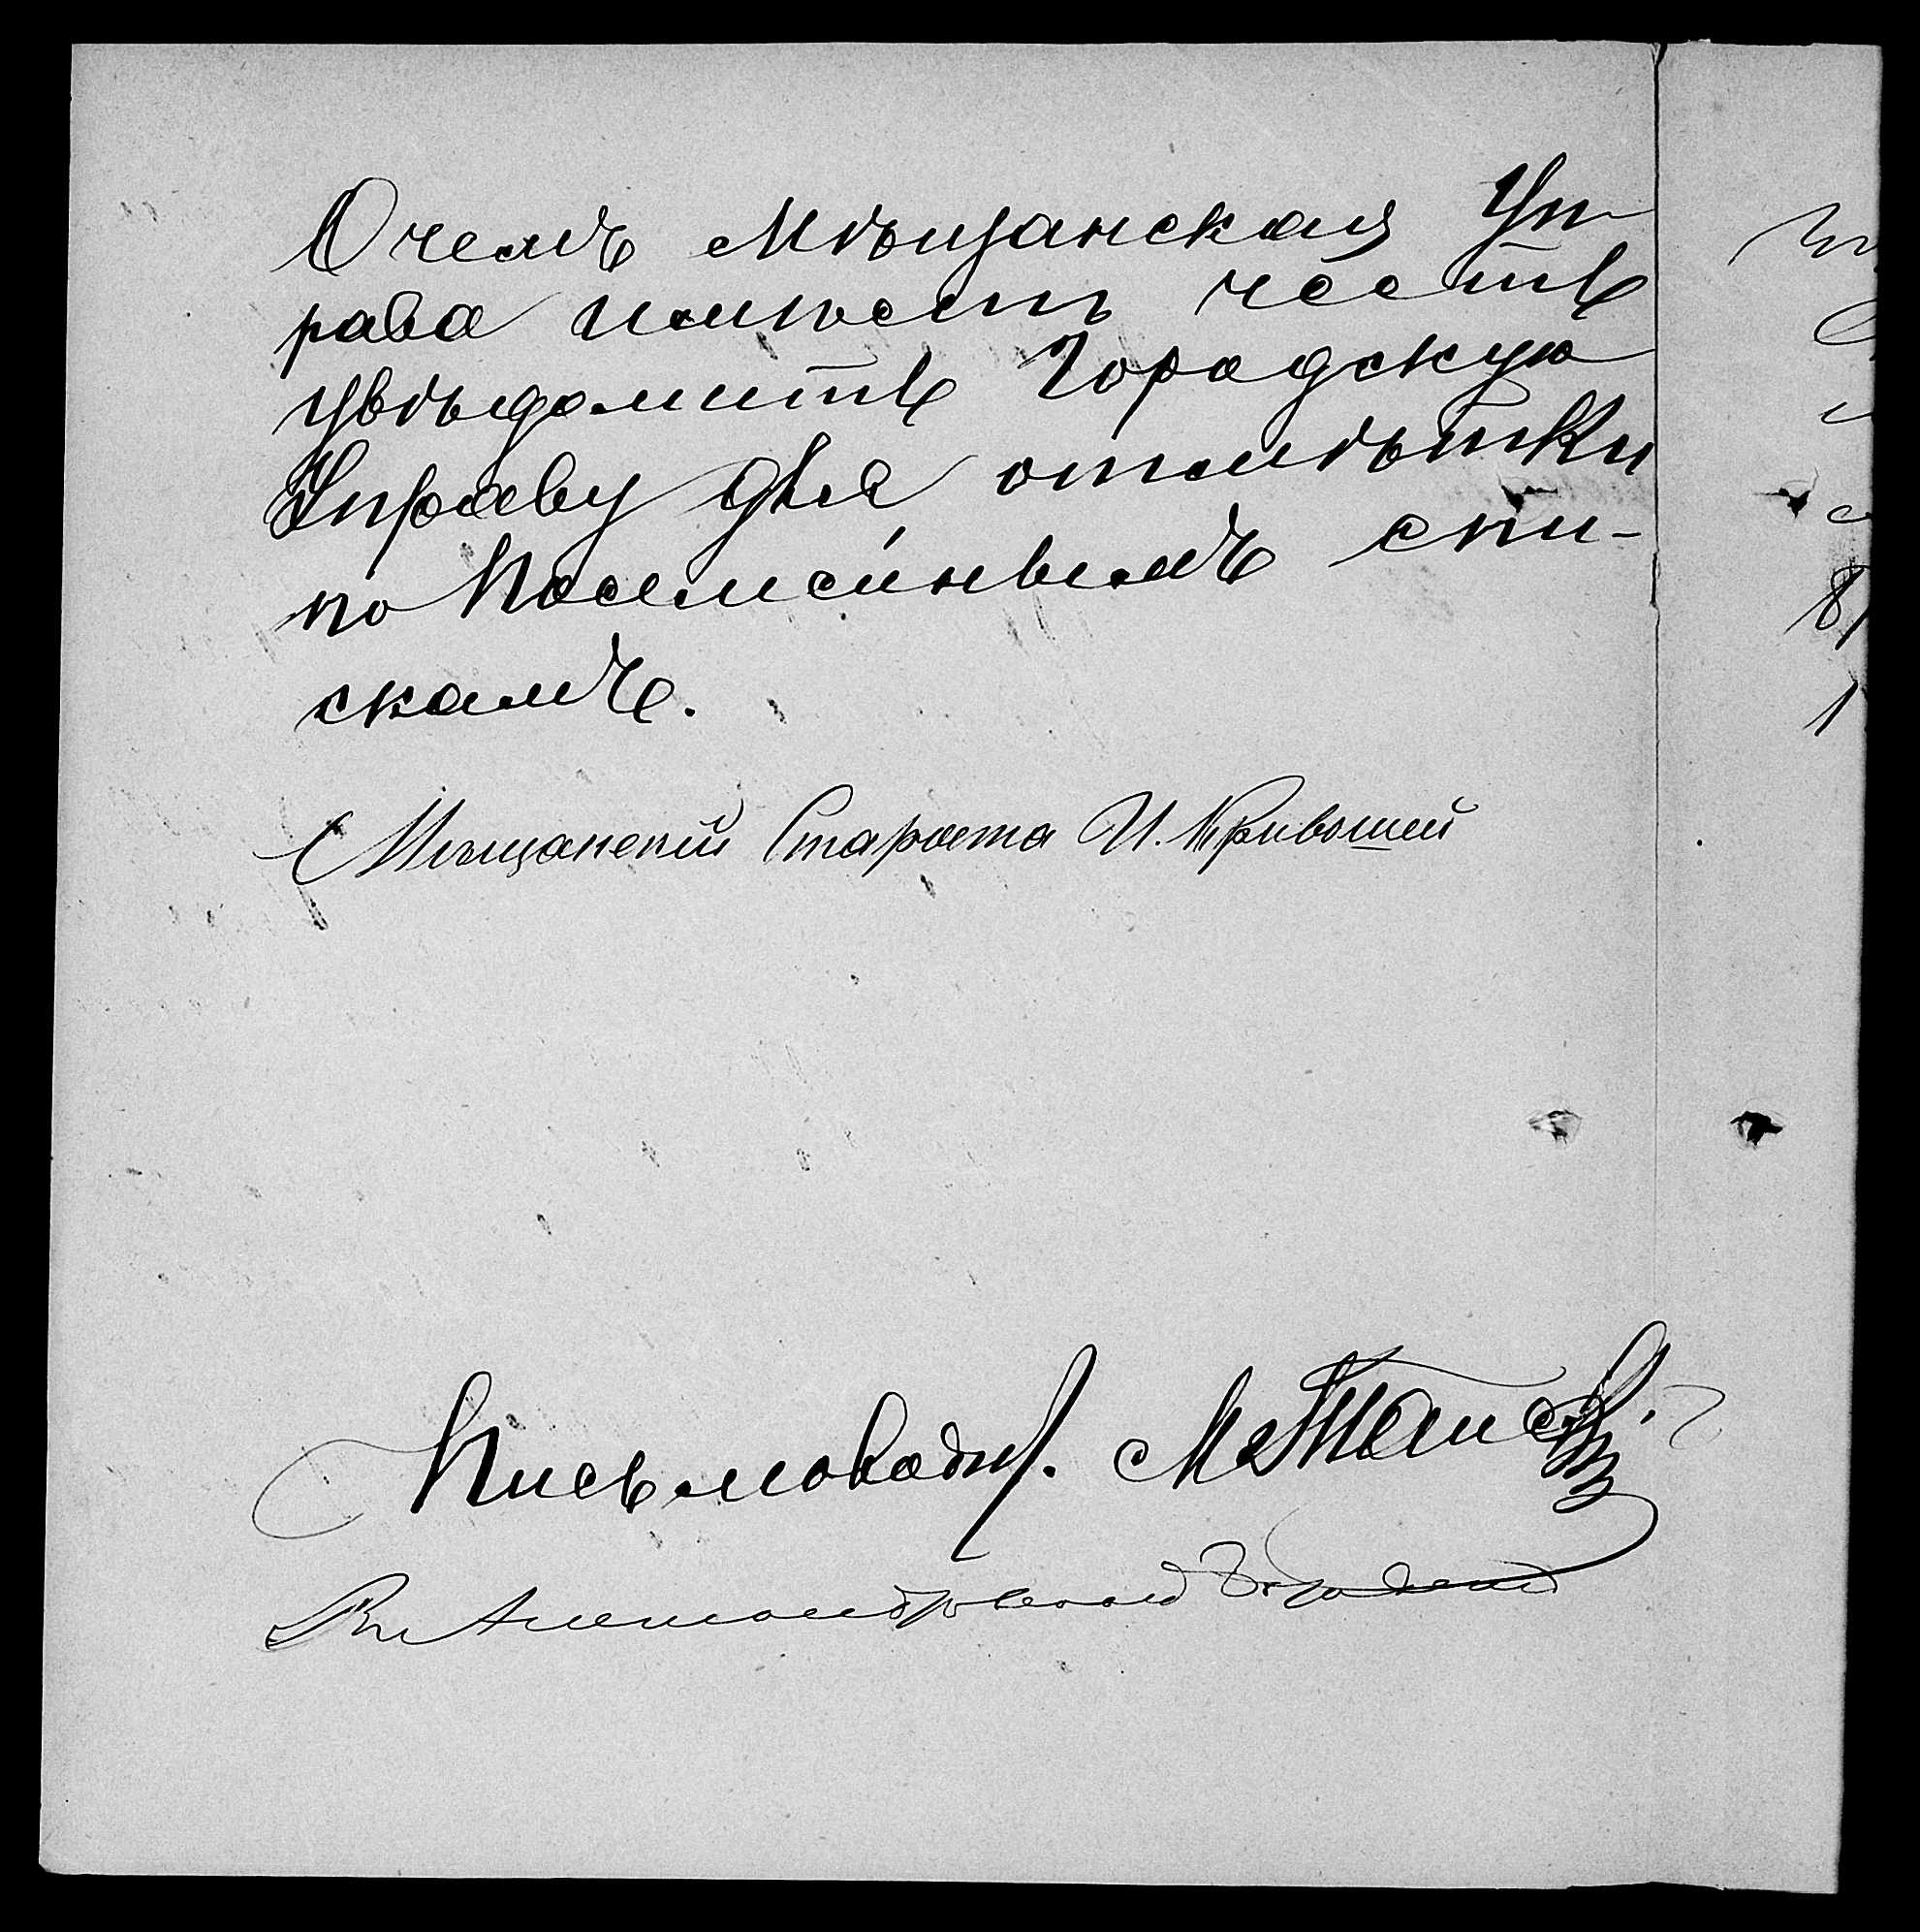 О чемъ Мѣщанская Уп-
рава имѣетъ честь
увѣдомить Городскую
Управу для отмѣтки
по Посемейнымъ спи-
скамъ.
Мѣщанскій Староста И. Кривошей
Письмоводит.